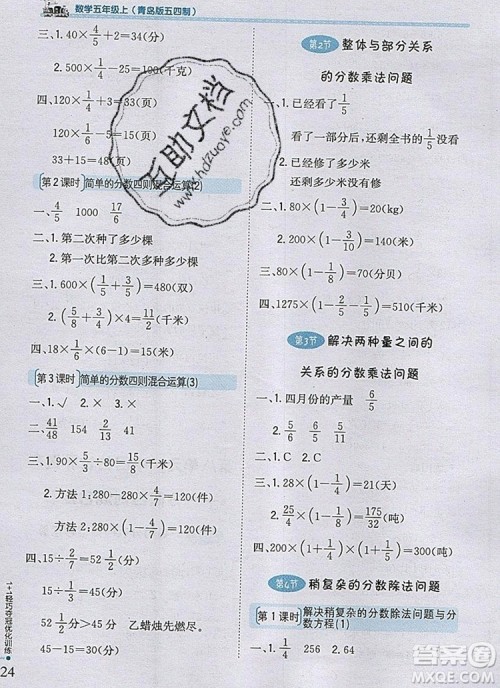 数学五年级上（青岛版五四制）
3. 10×4/5+2=10(只)
2. 500×1/4-25=100(千克)
四、120×1/4+3=33(页)
120×1/5-9=15(页)
33+15=48(页)
第2课时 简单的分数四则混合运算(2)
一、4/5 1000 17/6
二、1. 第二次种了多少棵
2. 第一次比第二次多种了多少棵
三、1. 300×(1/5+3/5)=480(双)
2. (5/8+3/4)×4=11/2(千米)
四、18×(1/6+1/3)=9(千米)
第3课时 简单的分数四则混合运算(3)
一、1. √ 2. × 3. ×
二、41/48 154 2/13 41/50
三、1. 90×(1/3-1/5)÷80=15/8(分)
2. 方法1 280×(1-4/7)=120(件)
方法2 280-280×4/7=120(件)
四、15÷2/3=22 1/2(分) 15÷1/3=45(分)
22 1/2分<30分 乙蜡烛先燃尽。
45-15=30(分)
1+1轻巧夺冠优化训练
24
第2节 整体与部分关系
的分数乘法问题
一、1. 已经看了 已经看了1/5
已经看了全书的1/5 还剩全书的几分之几
2. 已经修了多少米
还剩多少米
二、1. 80×(1-3/4)=20(kg)
2. 200×(1-2/5)=120(米)
三、270×(1-1/3)=180(米)
四、1275×(1-1/5-2/5)=510(千米)
第3节 解决两种量之间的
关系的分数乘法问题
一、1. 四月份的产量 6/5
2. 5/6 5/6 11/5 4/5
二、1. C 2. C
三、1. 28×(1-1/4)=21(天)
2. 25/24×(1-1/10)=15/16(吨)
四、250×(1+1/5)=300(吨)
第4节 稍复杂的分数除法问题
第1课时 解决稍复杂的分数除法问题与分
数方程(1)
一、1. 1/4 256 2. 64
互助文档
www.hdzuoye.com
答案圈
MXQE.COM